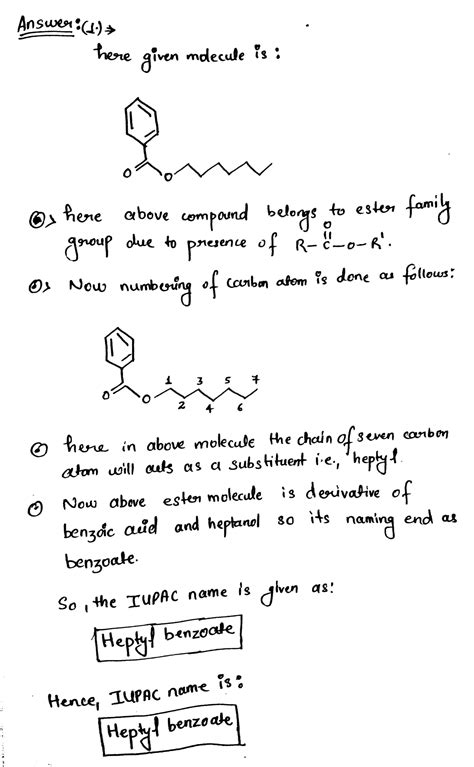 Answer:(1.)→
here given molecule is :
O
O
⊙> here above compound belongs to ester family
group due to presence of R-C-O-R'.
O
⊙> Now numbering of carbon atom is done as follows:
1 3 5 7
O
O 2 4 6
⊙ here in above molecule the chain of seven carbon
atom will acts as a substituent i.e., heptyl.
⊙ Now above ester molecule is derivative of
benzoic acid and heptanol so its naming end as
benzoate.
So, the IUPAC name is given as:
Heptyl benzoate
Hence, IUPAC name is:
Heptyl benzoate